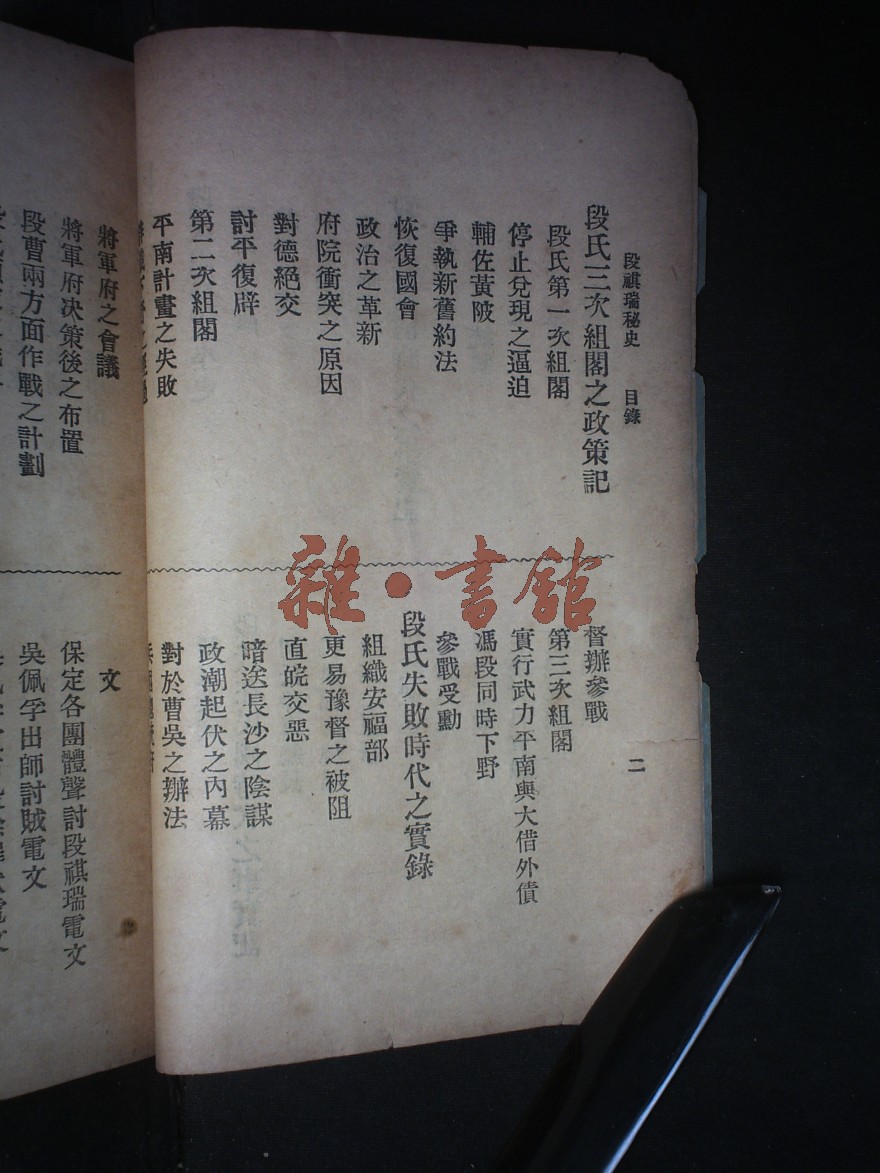 段祺瑞秘史 目錄 二
段氏三次組閣之政策記
段氏第一次組閣
停止兌現之逼迫
輔佐黃陂
爭執新舊約法
恢復國會
政治之革新
府院衝突之原因
對德絕交
討平復辟
第二次組閣
平南計畫之失敗
督辦參戰
第三次組閣
實行武力平南與大借外債
馮段同時下野
參戰受勳
段氏失敗時代之實錄
組織安福部
更易豫督之被阻
直皖交惡
暗送長沙之陰謀
政潮起伏之內幕
對於曹吳之辦法
將軍府之會議
將軍府决策後之布置
段曹兩方面作戰之計劃
文
保定各團體聲討段祺瑞電文
吳佩孚出師討賊電文
雜·書館